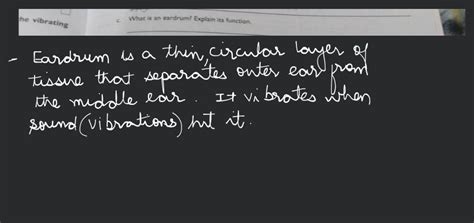 he vibrating
c. What is an eardrum? Explain its function.
- Eardrum is a thin, circular layer of
tissue that separates outer ear from
the middle ear. It vibrates when
sound (vibrations) hit it.